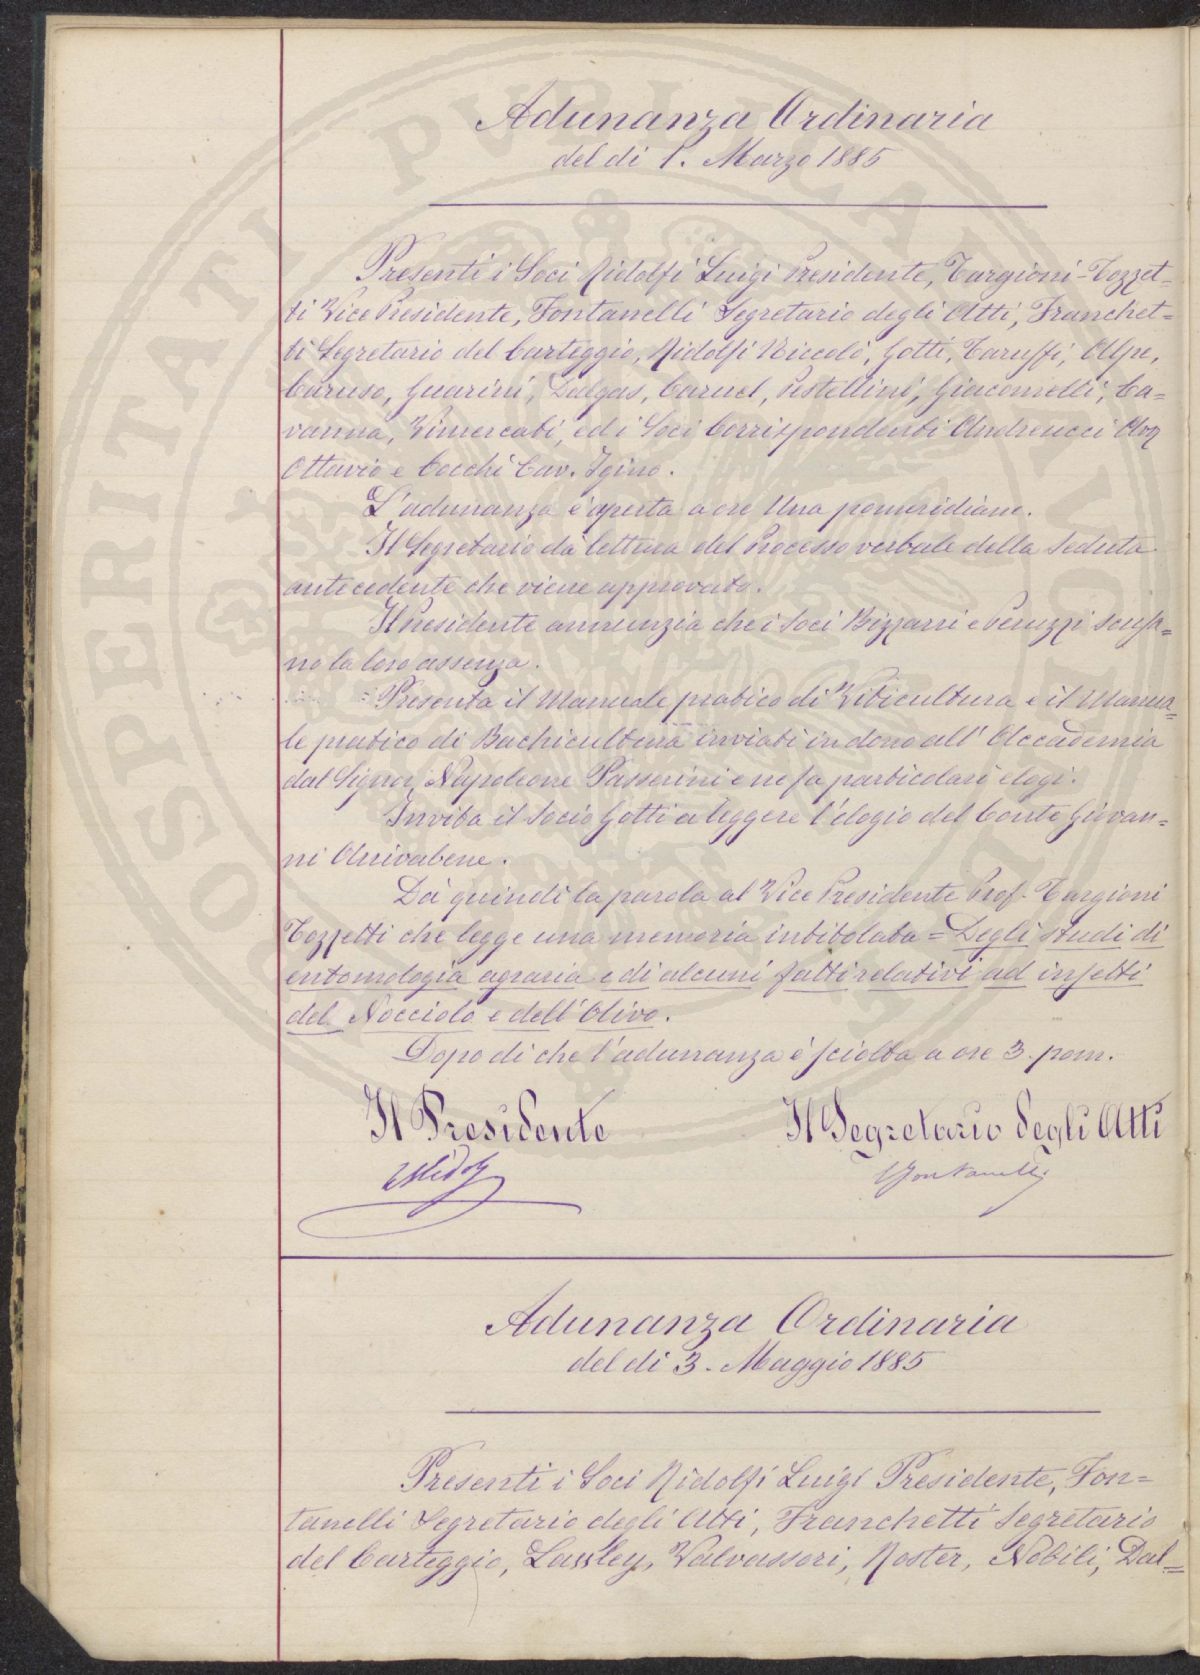 Adunanza Ordinaria
del dì 1. Marzo 1885
Presenti i Soci Ridolfi Luigi Presidente, Targioni-Tozzet-
ti Vice Presidente, Fontanelli Segretario degli Atti, Franchet=
ti Segretario del Carteggio, Ridolfi Niccolò, Gotti, Taruffi, Alpe,
Caruso, Guarini, Dalgas, Caruel, Pestellini, Giacomelli, Ca=
vanna, Vimercati, ed i Soci Corrispondenti Andreucci Avv
Ottavio e Cocchi Cav. Igino.
L'adunanza è aperta a ore Una pomeridiane.
Il Segretario dà lettura del Processo verbale della Seduta
antecedente che viene approvato.
Il Presidente annunzia che i Soci Bizzarri e Peruzzi scusa=
no la loro assenza.
Presenta il Manuale pratico di Viticultura e il Manua=
le pratico di Bachicultura inviati in dono all'Accademia
dal Signor Napoleone Passerini e ne fa particolari elogi.
Invita il Socio Gotti a leggere l'elogio del Conte Giovan=
ni Arrivabene.
Dà quindi la parola al Vice Presidente Prof. Targioni
Tozzetti che legge una memoria intitolata = Degli studi di
entomologia agraria e di alcuni fatti relativi ad insetti
del Nocciolo e dell'Olivo.
Dopo di che l'adunanza è sciolta a ore 3. pom.
Il Presidente Il Segretario degli Atti
LRidolfi Fontanelli
Adunanza Ordinaria
del dì 3. Maggio 1885
Presenti i Soci Ridolfi Luigi Presidente, Fon=
tanelli Segretario degli Atti, Franchetti Segretario
del Carteggio, Lawley, Valvassori, Roster, Nobili, Dal=
PROSPERITATI PUBLICAE